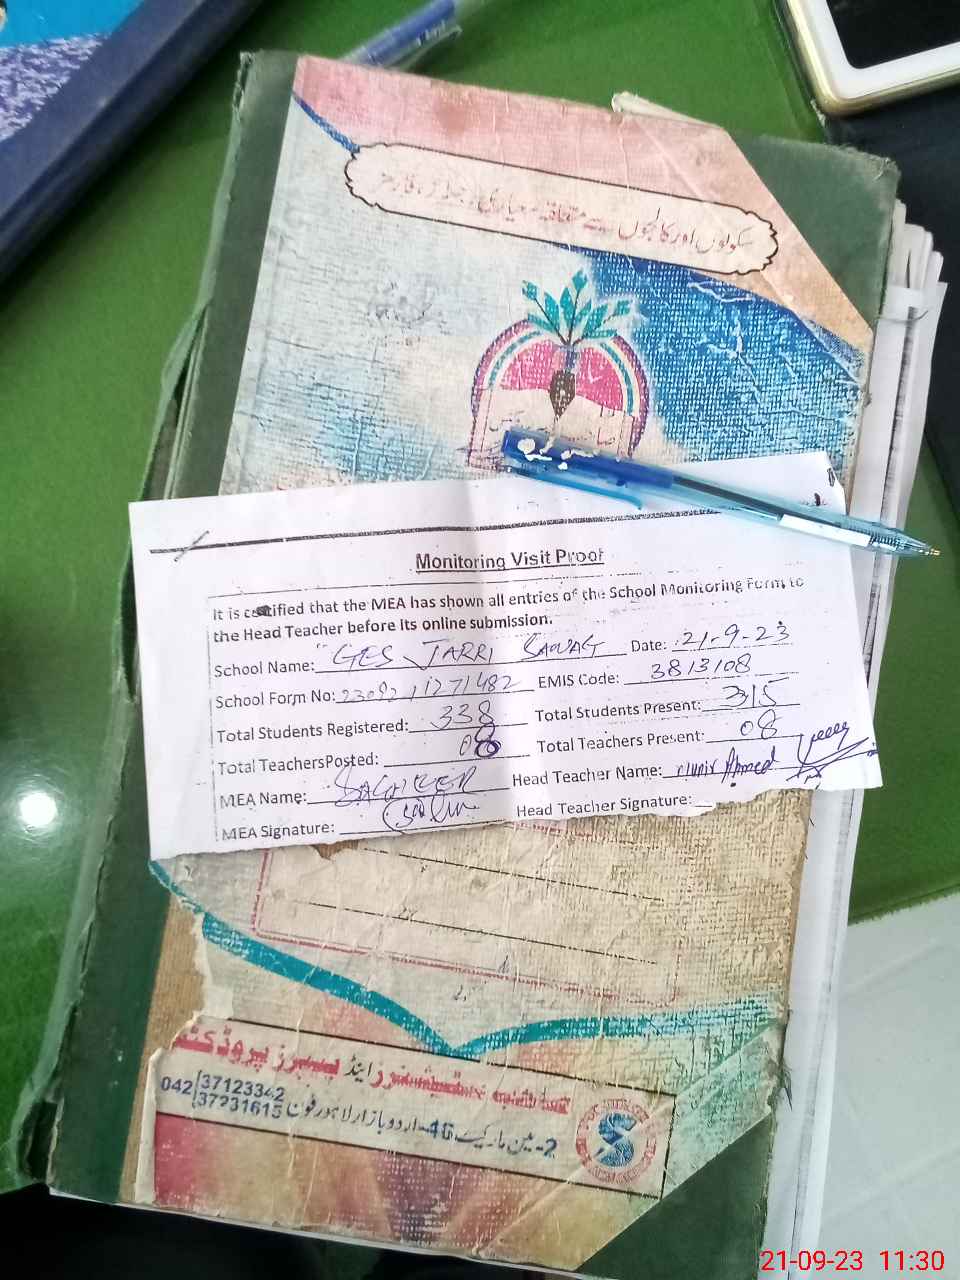 سکولوں اور کالجوں سے متعلقہ معیاری رجسٹرز، فارمز
Monitoring Visit Proof
It is certified that the MEA has shown all entries of the School Monitoring Form to
the Head Teacher before its online submission.
School Name: GES JARRI Date: 21-9-23
School Form No: EMIS Code: 3813108
Total Students Registered: 338 Total Students Present: 315
Total TeachersPosted: 08 Total Teachers Present: 08
MEA Name: SAGHEER Head Teacher Name: Ahmed
MEA Signature: Head Teacher Signature:
سٹیشنرز اینڈ پیپرز پروڈکٹس
2-مین مارکیٹ 46-اردو بازار لاہور فون 042 37123342
37231615
21-09-23 11:30